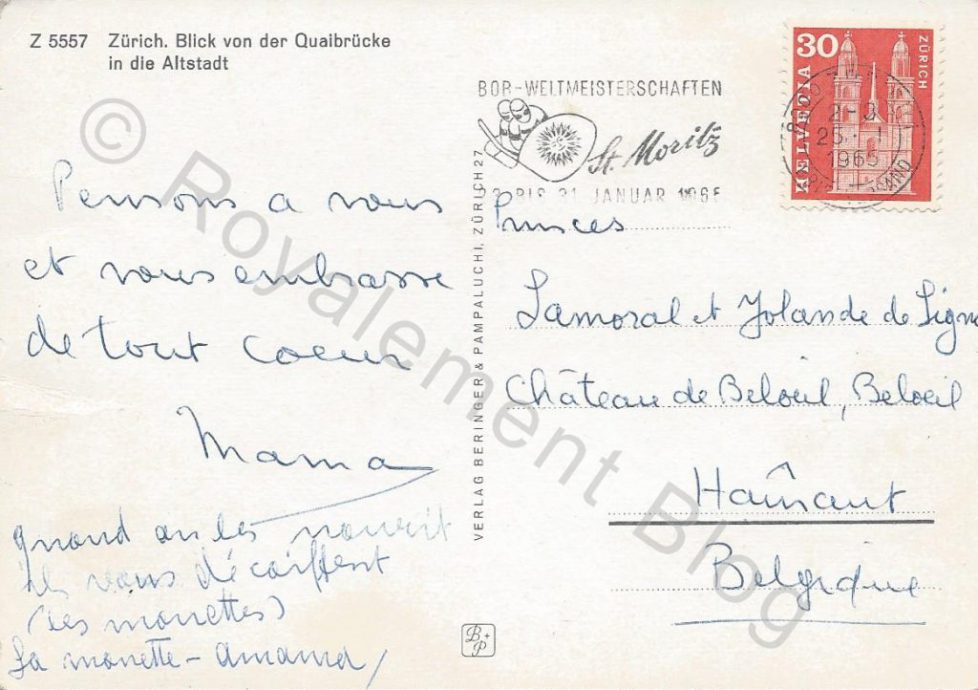 Z 5557 Zürich. Blick von der Quaibrücke
in die Altstadt
BOB-WELTMEISTERSCHAFTEN
St. Moritz
BIS 31 JANUAR 1965
HELVETIA 30 ZÜRICH
2-3
25. 1
1965
Pensons a vous
et vous embrasse
de tout coeur
Mama
quand on les nourrit
ils vous décoiffent
(les mouettes)
La mouette - Amama
VERLAG BERINGER & PAMPALUCHI, ZÜRICH 27
Princes
Lamoral et Yolande de Ligne
Château de Beloeil, Beloeil
Haînaut
Belgique
B+P
© Royalement Blog